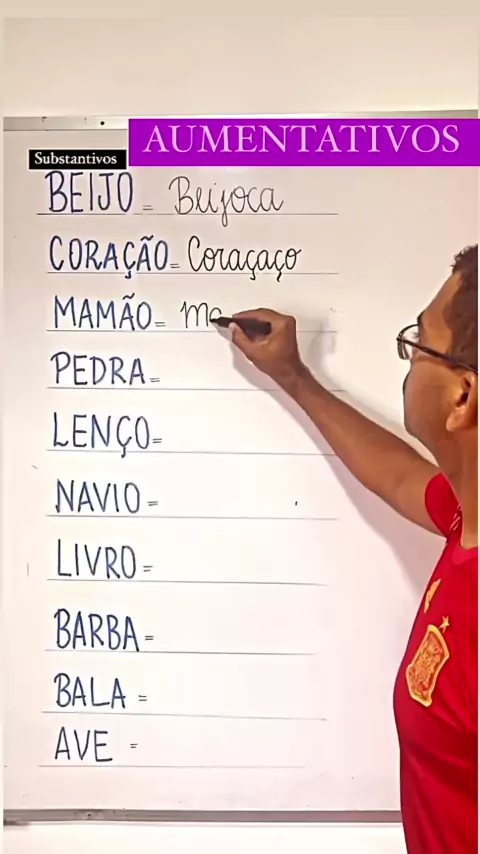 AUMENTATIVOS
Substantivos
BEIJO = Beijoca
CORAÇÃO = Coraçaço
MAMÃO = Ma
PEDRA =
LENÇO =
NAVIO =
LIVRO =
BARBA =
BALA =
AVE =